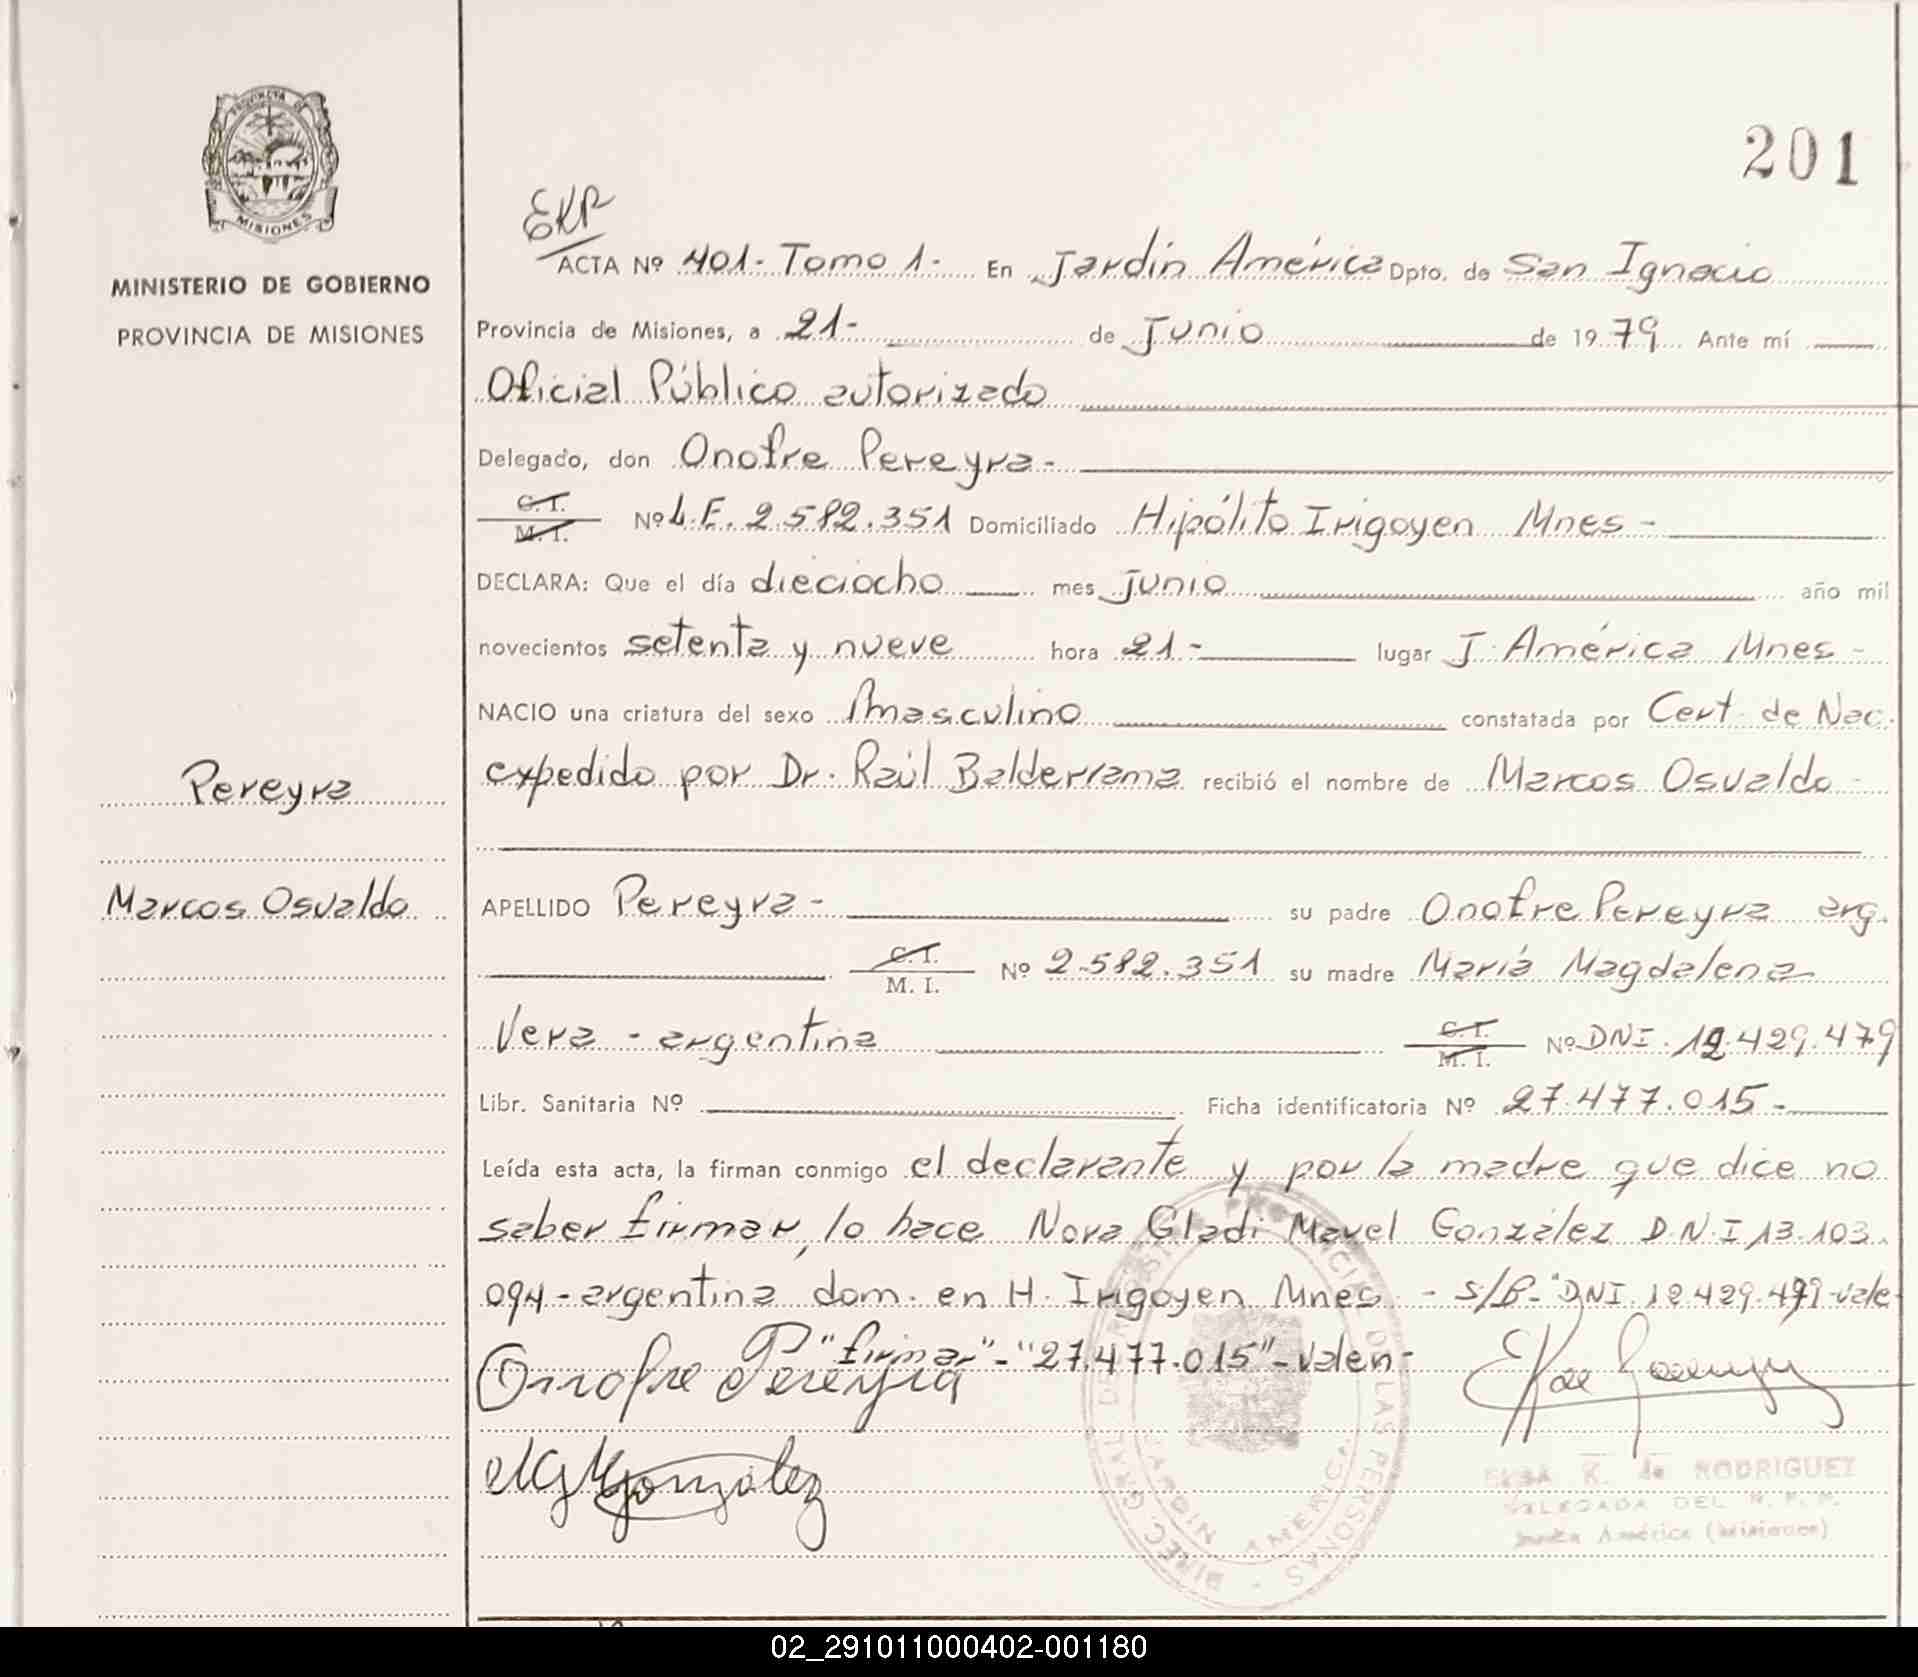 PROVINCIA DE
MISIONES
MINISTERIO DE GOBIERNO
PROVINCIA DE MISIONES
Pereyra
Marcos Osvaldo
201
EKR
ACTA Nº 401- Tomo 1- En Jardín América Dpto. de San Ignacio
Provincia de Misiones, a 21- de Junio de 1979 Ante mí
Oficial Público autorizado
Delegado, don Onofre Pereyra-
C.I.
M.I. Nº L.E. 2.582.351 Domiciliado Hipólito Irigoyen Mnes-
DECLARA: Que el día dieciocho mes junio año mil
novecientos setenta y nueve hora 21- lugar J. América Mnes-
NACIO una criatura del sexo Masculino constatada por Cert. de Nac.
expedido por Dr. Raúl Balderrama recibió el nombre de Marcos Osvaldo-
APELLIDO Pereyra- su padre Onofre Pereyra arg.
C.I.
M. I. Nº 2.582.351 su madre María Magdalena
Vera - argentina C.I.
M.I. Nº DNI. 12.429.479
Libr. Sanitaria Nº Ficha identificatoria Nº 27.477.015-
Leída esta acta, la firman conmigo el declarante y por la madre que dice no
saber firmar, lo hace Nora Gladi Mavel González D.N.I 13.103.
094-argentina dom. en H. Irigoyen Mnes. - s/B- "DNI. 12.429.479-vale
"firmar"-"27.477.015"-valen-
Onofre Pereyra
NGMGonzález
DIREC. GRAL DE PROVINCIA DE LAS PERSONAS
JARDIN AMERICA
ELSA K. de RODRIGUEZ
DELEGADA DEL
América (Misiones)
02_291011000402-001180